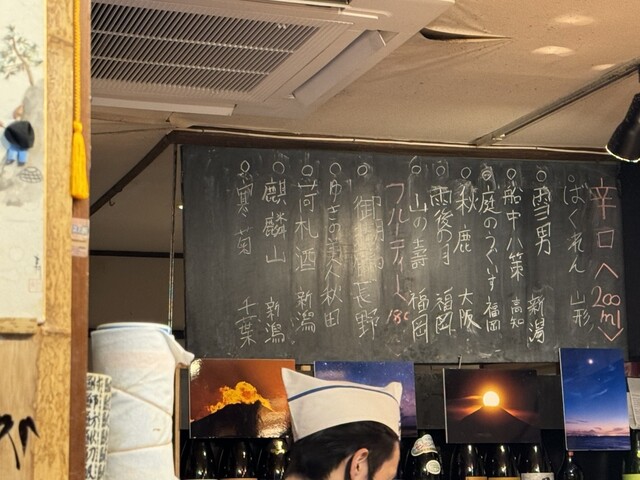 辛口へ 200ml
ばくれん 山形
○雪男 新潟
○船中八策 高知
○庭のうぐいす 福岡
○秋鹿 大阪
○雨後の月 福岡
○山の壽 福岡
フルーティーへ 180
○御湖鶴 長野
○ゆきの美人 秋田
○荷札酒 新潟
○麒麟山 新潟
○寒菊 千葉